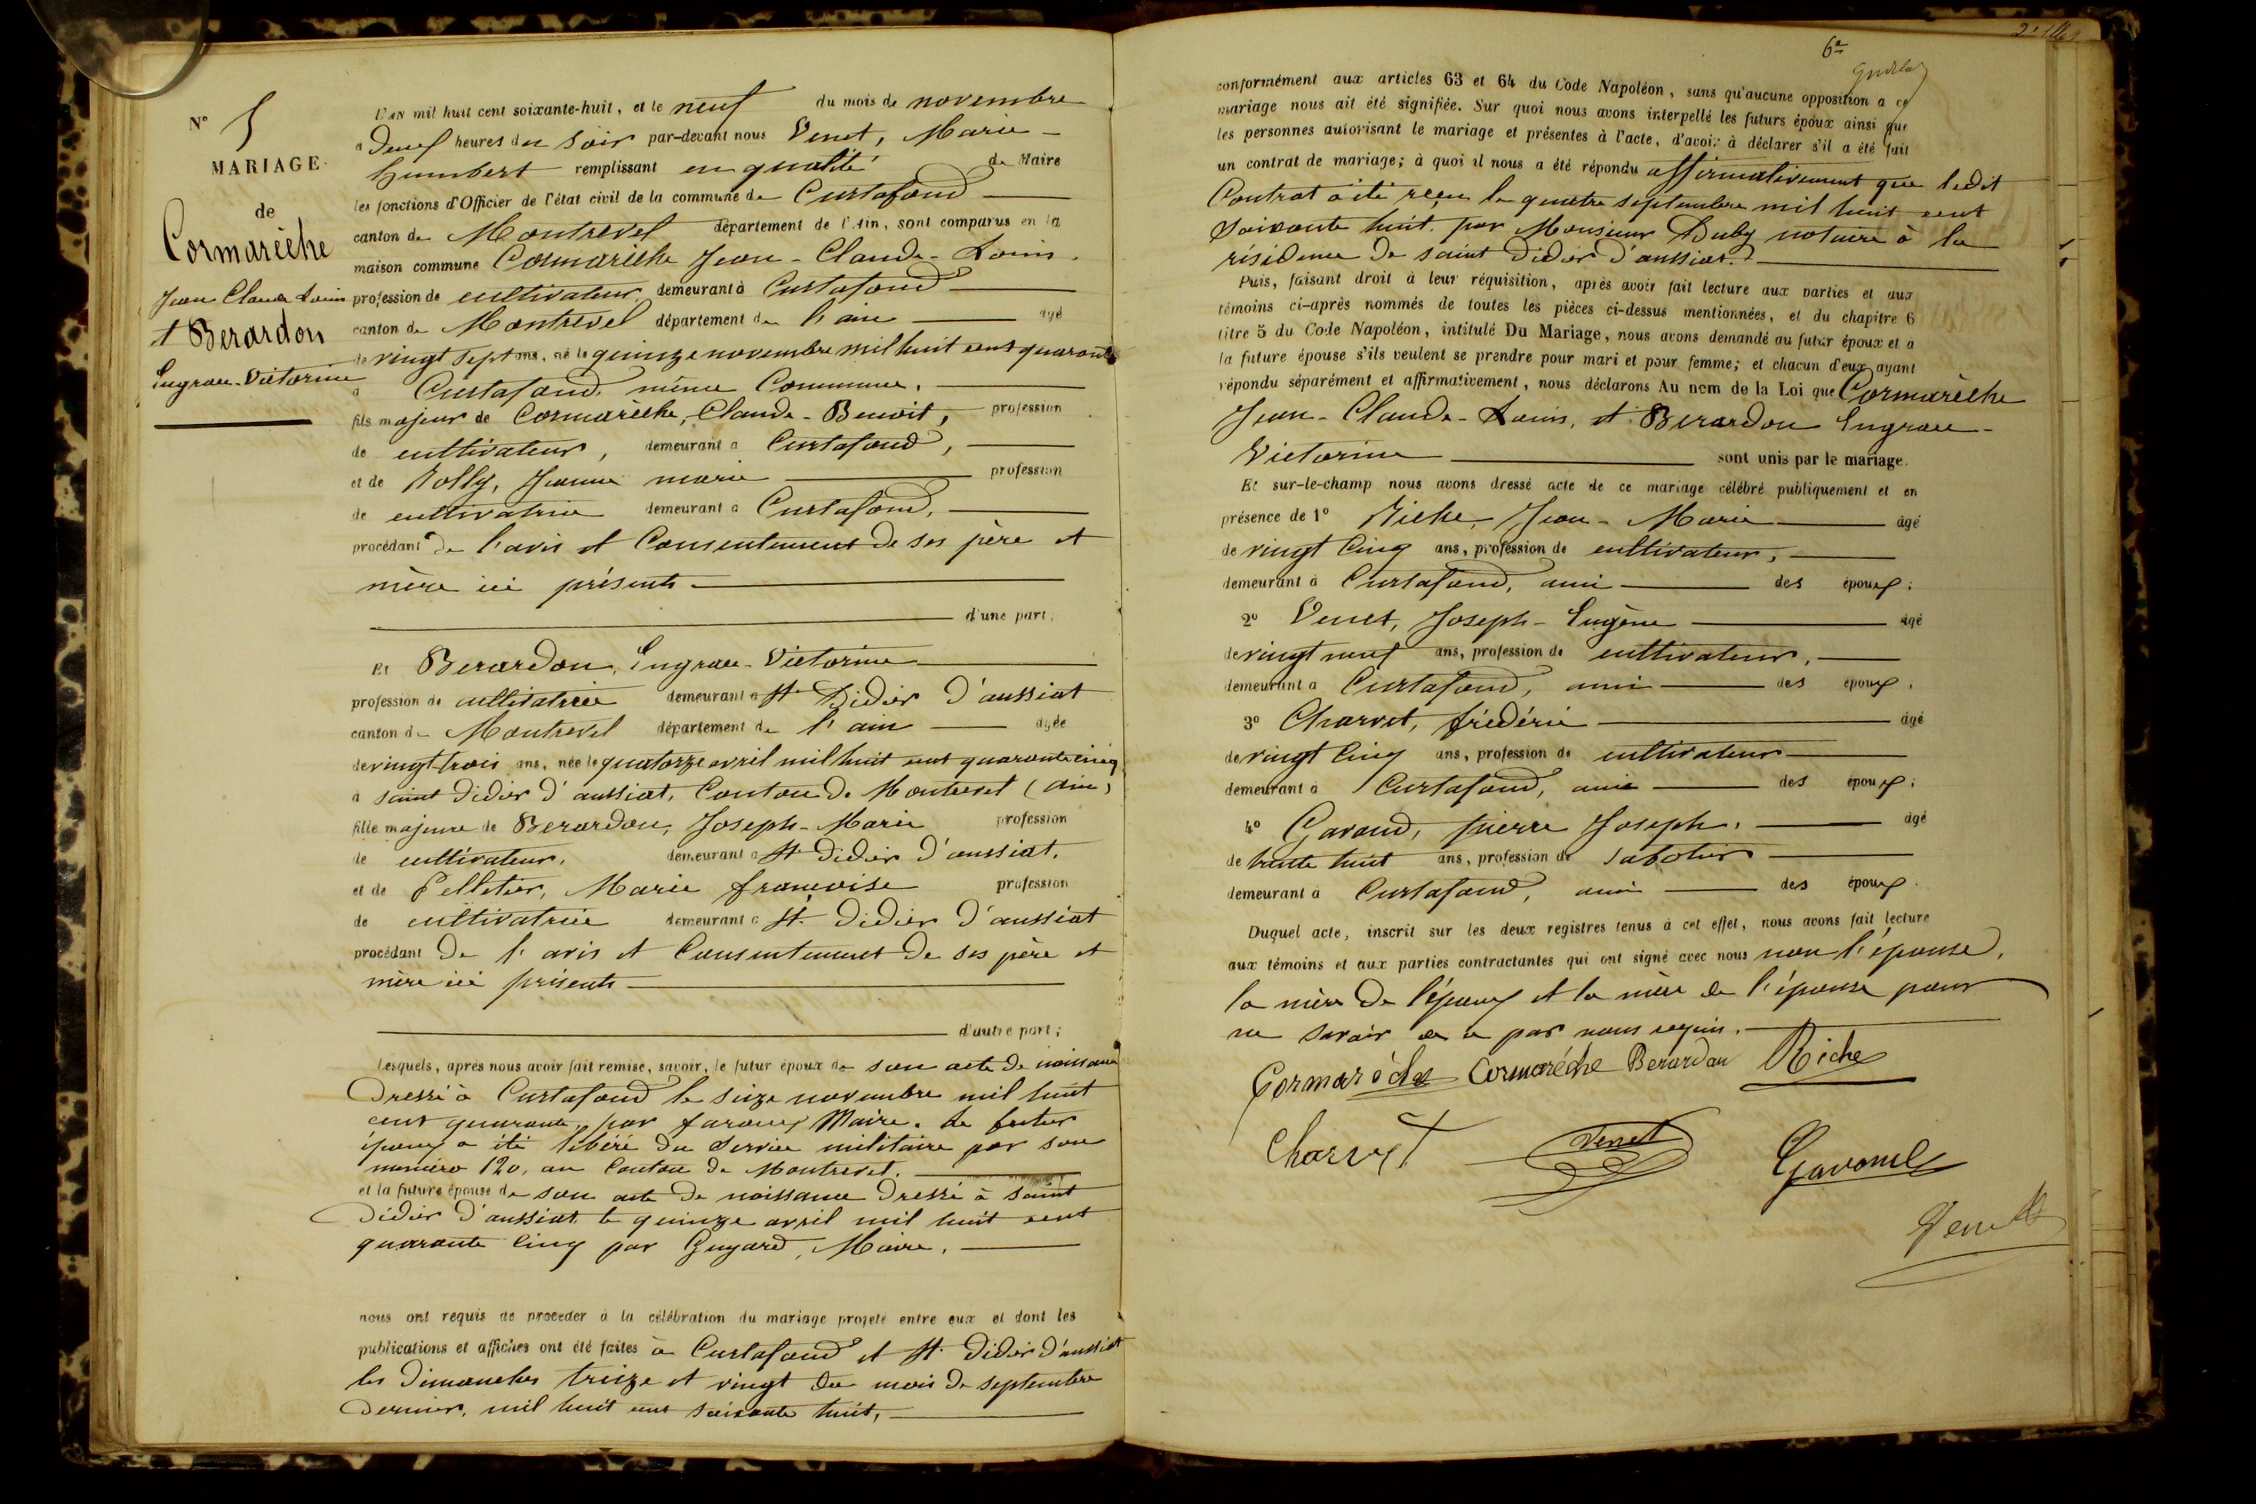 Nº 5
MARIAGE
de
Cormarèche
Jean Claude Louis
et Berardon
Engrace-Victorine
L'AN mil huit cent soixante-huit, et le neuf du mois de novembre
à Deux heures du Soir par-devant nous Venet, Marie-
Humbert remplissant en qualité de Maire
les fonctions d'Officier de l'état civil de la commune de Curtafond
canton de Montrevel département de l'Ain, sont comparus en la
maison commune Cormarèche Jean-Claude-Louis.
profession de cultivateur demeurant à Curtafond
canton de Montrevel département de l'ain âgé
de vingt sept ans, né le quinze novembre mil huit cent quarante
à Curtafond même Commune.
fils majeur de Cormarèche, Claude-Benoit, profession
de cultivateur, demeurant à Curtafond,
et de Jolly, Jeanne marie profession
de cultivatrice demeurant à Curtafond,
procédant de l'avis et Consentement de ses père et
mère ici présents
d'une part,
Et Berardon, Engrace-Victorine
profession de cultivatrice demeurant à St Didier d'aussiat
canton de Montrevel département de l'ain âgée
de vingt-trois ans, née le quatorze avril mil huit cent quarante cinq
à saint Didier d'aussiat, Canton de Montrevel (Ain)
fille majeure de Berardon, Joseph-Marie profession
de cultivateur, demeurant à St Didier d'aussiat.
et de Pelletier, Marie françoise profession
de cultivatrice demeurant à St. Didier d'aussiat
procédant de l'avis et Consentement de ses père et
mère ici présents
d'autre part;
Lesquels, après nous avoir fait remise, savoir, le futur époux de son acte de naissance
Dressé à Curtafond le seize novembre mil huit
cent quarante, par faroux Maire. Le futur
époux a été libéré du Service militaire par son
numéro 120, au Canton de Montrevel.
et la future épouse de son acte de naissance Dressé à Saint
Didier d'aussiat le quinze avril mil huit cent
quarante cinq par Guyard, Maire.
nous ont requis de procéder à la célébration du mariage projeté entre eux et dont les
publications et affiches ont été faites à Curtafond et St Didier d'aussiat
les Dimanches treize et vingt du mois de septembre
dernier, mil huit cent soixante huit,
6e
conformément aux articles 63 et 64 du Code Napoléon, sans qu'aucune opposition à ce
mariage nous ait été signifiée. Sur quoi nous avons interpellé les futurs époux ainsi que
les personnes autorisant le mariage et présentes à l'acte, d'avoir à déclarer s'il a été fait
un contrat de mariage; à quoi il nous a été répondu affirmativement que ledit
Contrat a été reçu le quatre septembre mil huit cent
soixante huit, par Monsieur Duby notaire à la
résidence de saint Didier d'aussiat.
Puis, faisant droit à leur réquisition, après avoir fait lecture aux parties et aux
témoins ci-après nommés de toutes les pièces ci-dessus mentionnées, et du chapitre 6
titre 5 du Code Napoléon, intitulé Du Mariage, nous avons demandé au futur époux et à
la future épouse s'ils veulent se prendre pour mari et pour femme; et chacun d'eux ayant
répondu séparément et affirmativement, nous déclarons Au nom de la Loi que Cormarèche
Jean-Claude-Louis, et Berardon Engrace-
Victorine sont unis par le mariage.
Et sur-le-champ nous avons dressé acte de ce mariage célébré publiquement et en
présence de 1º Riche, Jean-Marie âgé
de vingt cinq ans, profession de cultivateur,
demeurant à Curtafond, ami des époux;
2º Venet, Joseph-Eugène âgé
de vingt neuf ans, profession de cultivateur,
demeurant à Curtafond, ami des époux,
3º Charvet, frédéric âgé
de vingt cinq ans, profession de cultivateur
demeurant à Curtafond, ami des époux;
4º Gavand, pierre Joseph, âgé
de trente huit ans, profession de sabotier
demeurant à Curtafond, ami des époux.
Duquel acte, inscrit sur les deux registres tenus à cet effet, nous avons fait lecture
aux témoins et aux parties contractantes qui ont signé avec nous non l'épouse,
la mère de l'époux et la mère de l'épouse pour
ne savoir de ce par nous requis.
Cormarèche Cormaréche Berardan Riche
Charvet Venet Gavand
Venet